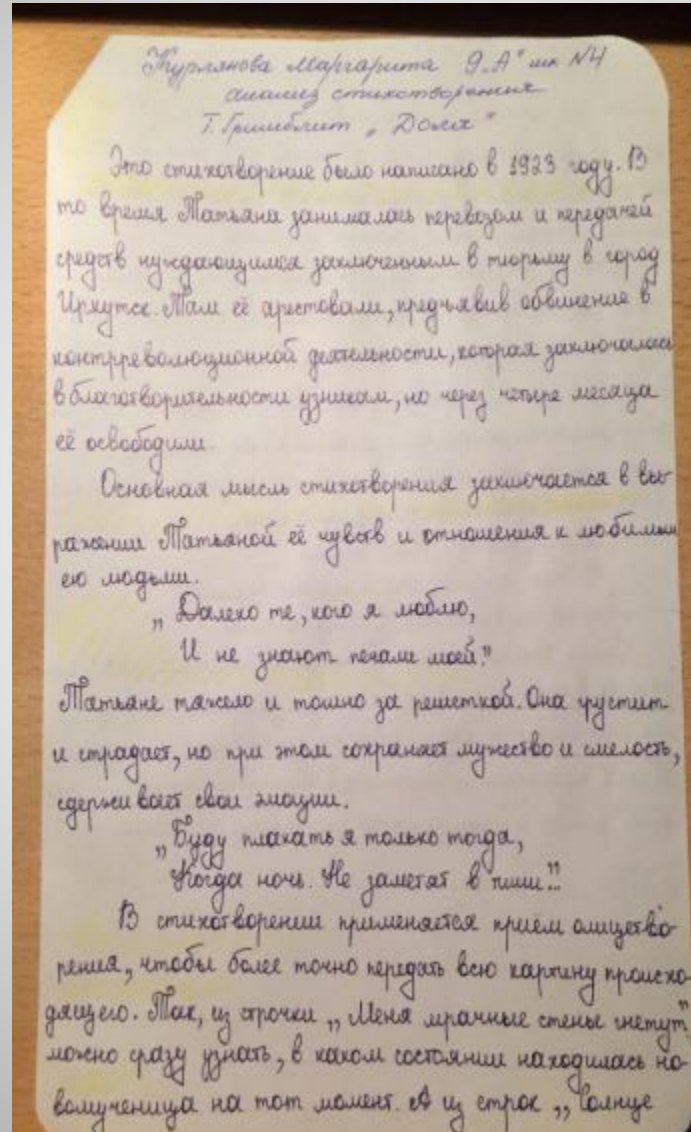 Турлянова Маргарита 9„А" шк №4
анализ стихотворения
Т. Гримблит „Доля"
Это стихотворение было написано в 1923 году. В
то время Татьяна занималась перевозом и передачей
средств нуждающимся заключенным в тюрьму в город
Иркутск. Там её арестовали, предъявив обвинение в
контрреволюционной деятельности, которая заключалась
в благотворительности узникам, но через четыре месяца
её освободили.
Основная мысль стихотворения заключается в вы-
ражении Татьяной её чувств и отношения к любимым
ею людьми.
„Далеко те, кого я люблю,
И не знают печали моей."
Татьяне тяжело и тошно за решеткой. Она грустит
и страдает, но при этом сохраняет мужество и смелость,
сдерживает свои эмоции.
„Буду плакать я только тогда,
Когда ночь. Не заметят в тиши..."
В стихотворении применяется приём олицетво-
рения, чтобы более точно передать всю картину происхо-
дящего. Так, из строчки „Меня мрачные стены гнетут"
можно сразу узнать, в каком состоянии находилась но-
вомученица на тот момент. А из строк „Солнце